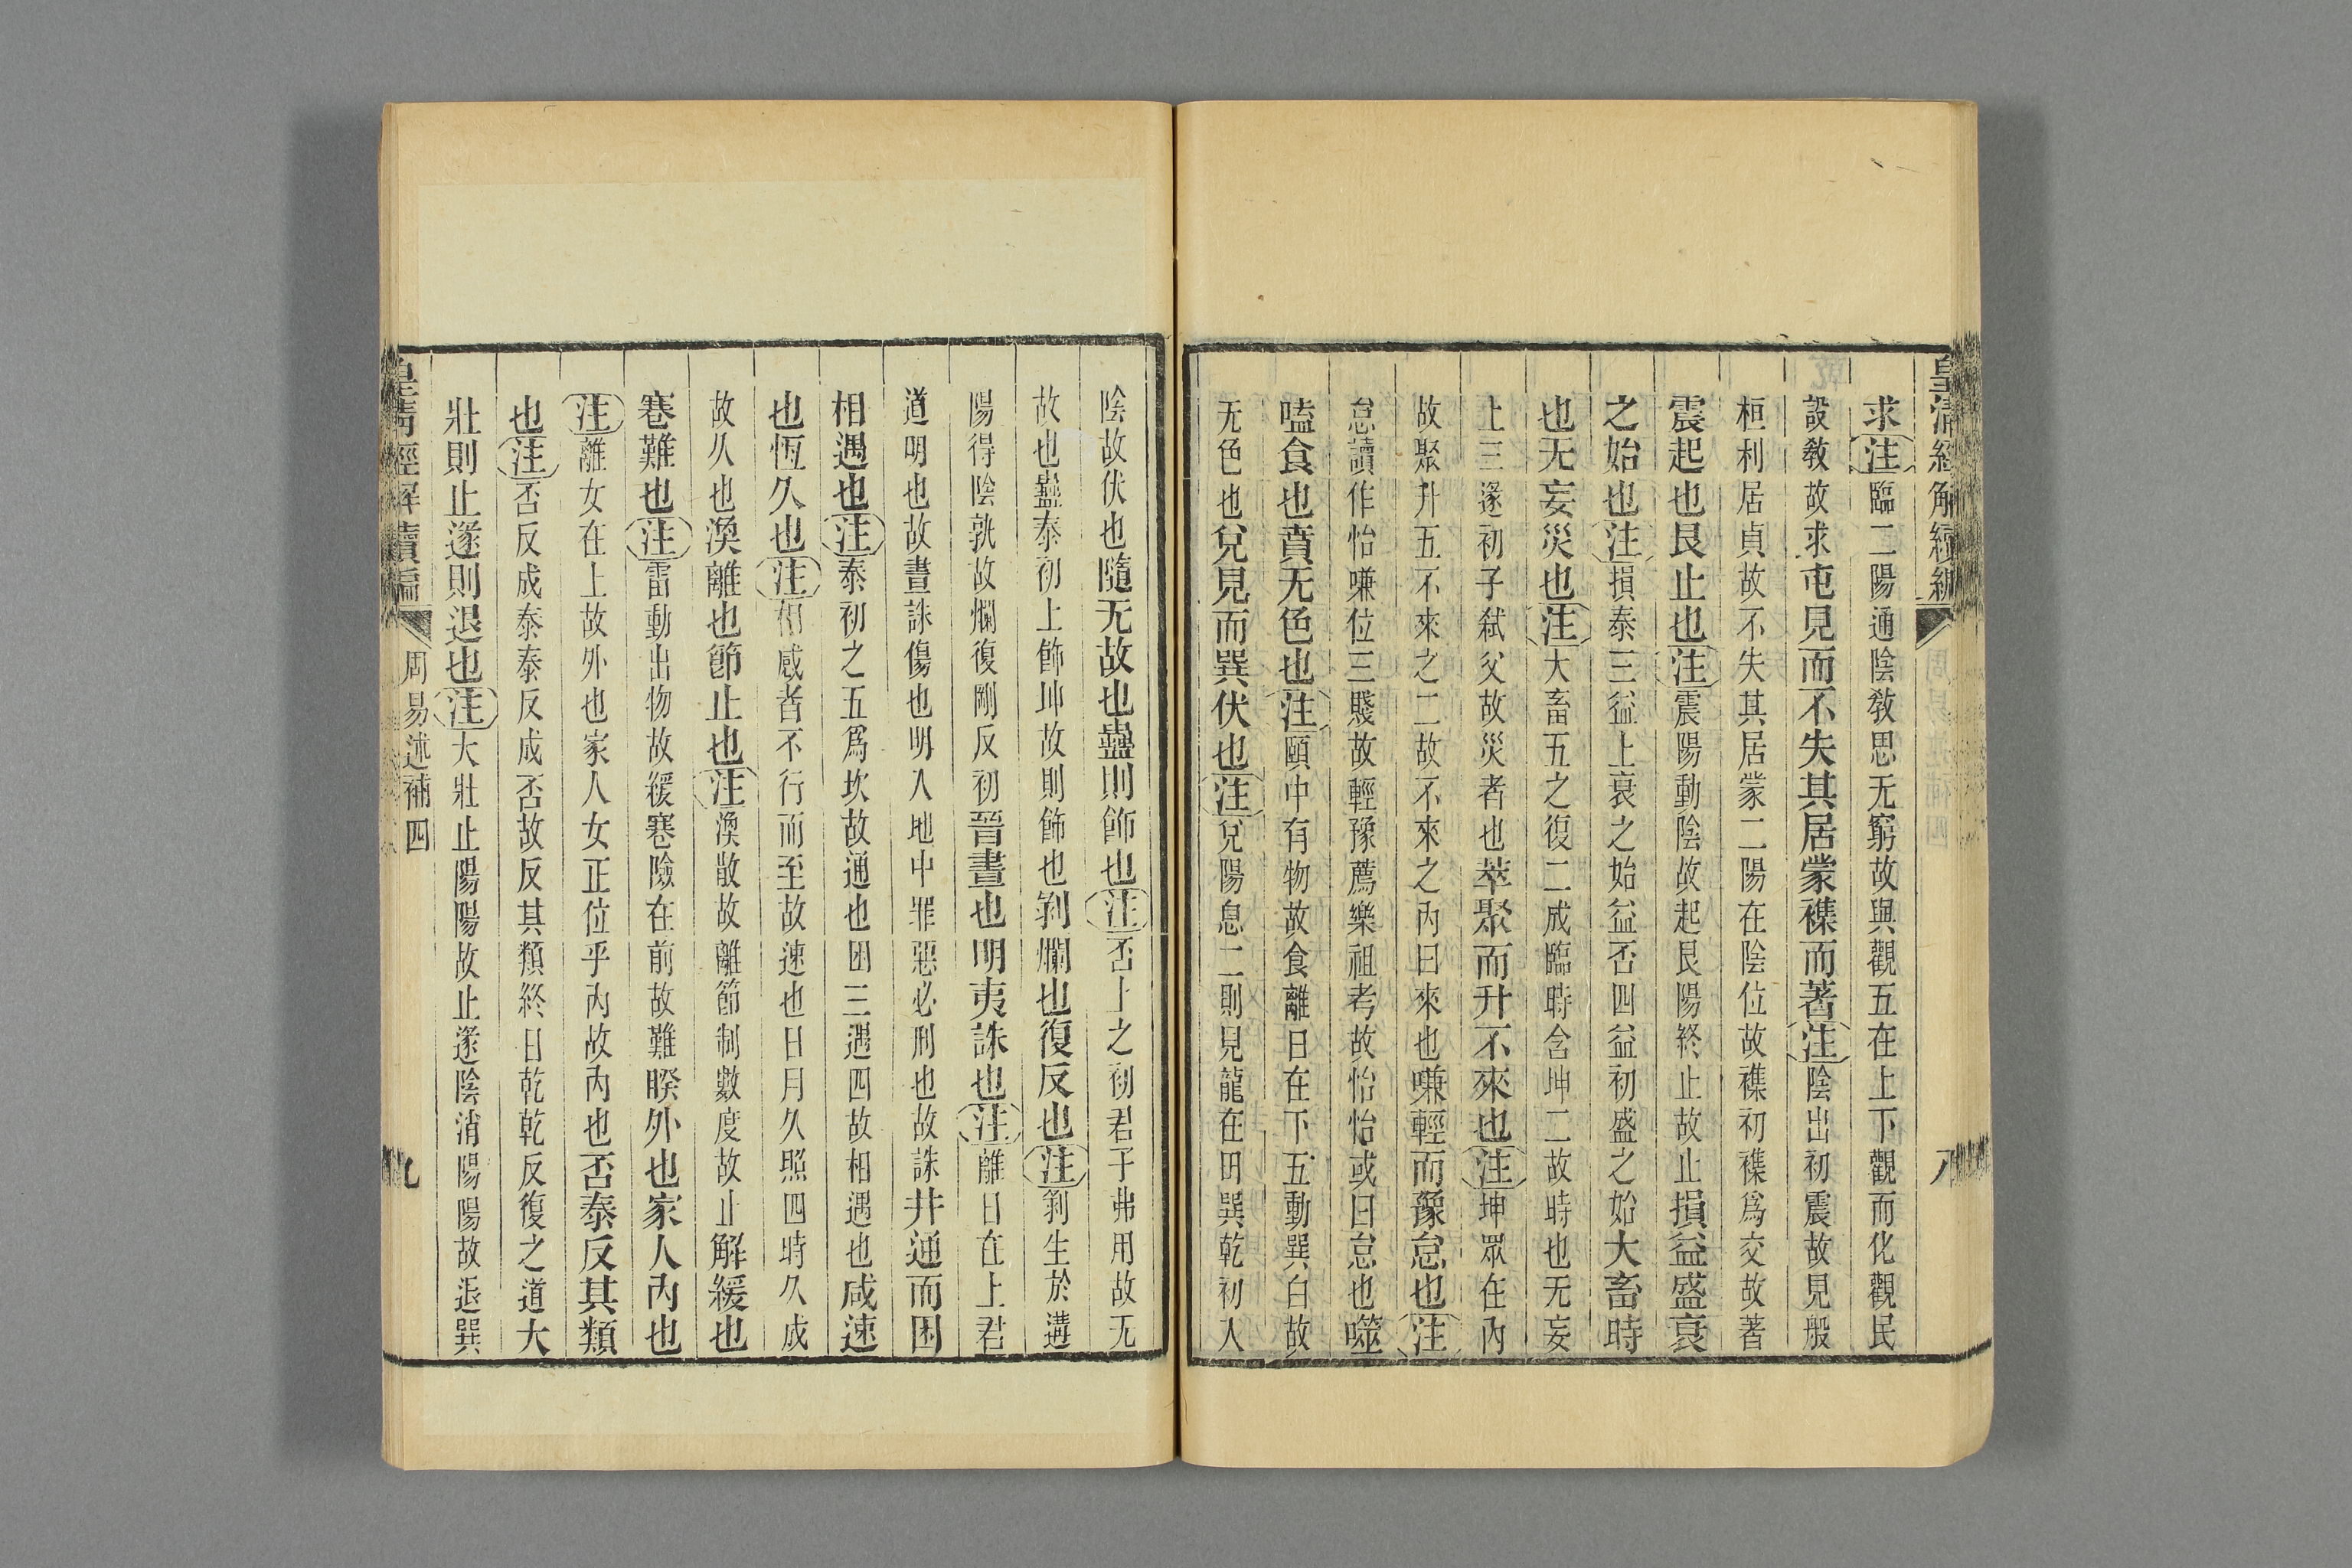 皇清經解續編
八
求注臨二陽通陰敎思无窮故與觀五在上下觀而化觀民
設敎故求屯見而不失其居蒙襍而著注陰出初震故見般
桓利居貞故不失其居蒙二陽在陰位故襍初襍爲交故著
震起也艮止也注震陽動陰故起艮陽終止故止損益盛衰
之始也注損泰三益上衰之始益否四益初盛之始大畜時
也无妄災也注大畜五之復二成臨時含坤二故時也无妄
上三遂初子弑父故災者也萃聚而升不來也注坤眾在內
故聚升五不來之二故不來之內曰來也嗛輕而豫怠也注
怠讀作怡嗛位三賤故輕豫薦樂祖考故怡怡或曰怠也噬
嗑食也賁无色也注頤中有物故食離日在下五動巽白故
无色也兌見而巽伏也注兌陽息二則見龍在田巽乾初入
陰故伏也隨无故也蠱則飾也注否上之初君子弗用故无
故也蠱泰初上飾坤故則飾也剝爛也復反也注剝生於遘
陽得陰孰故爛復剛反初晉晝也明夷誅也注離日在上君
道明也故晝誅傷也明入地中罪惡必刑也故誅井通而困
相遇也注泰初之五爲坎故通也困三遇四故相遇也咸速
也恆久也注相感者不行而至故速也日月久照四時久成
故久也渙離也節止也注渙散故離節制數度故止解緩也
蹇難也注雷動出物故緩蹇險在前故難睽外也家人內也
注離女在上故外也家人女正位乎內故內也否泰反其類
也注否反成泰泰反成否故反其類終日乾乾反復之道大
壯則止遂則退也注大壯止陽陽故止遂陰消陽陽故退巽
皇清經解續編
周易述補四
九